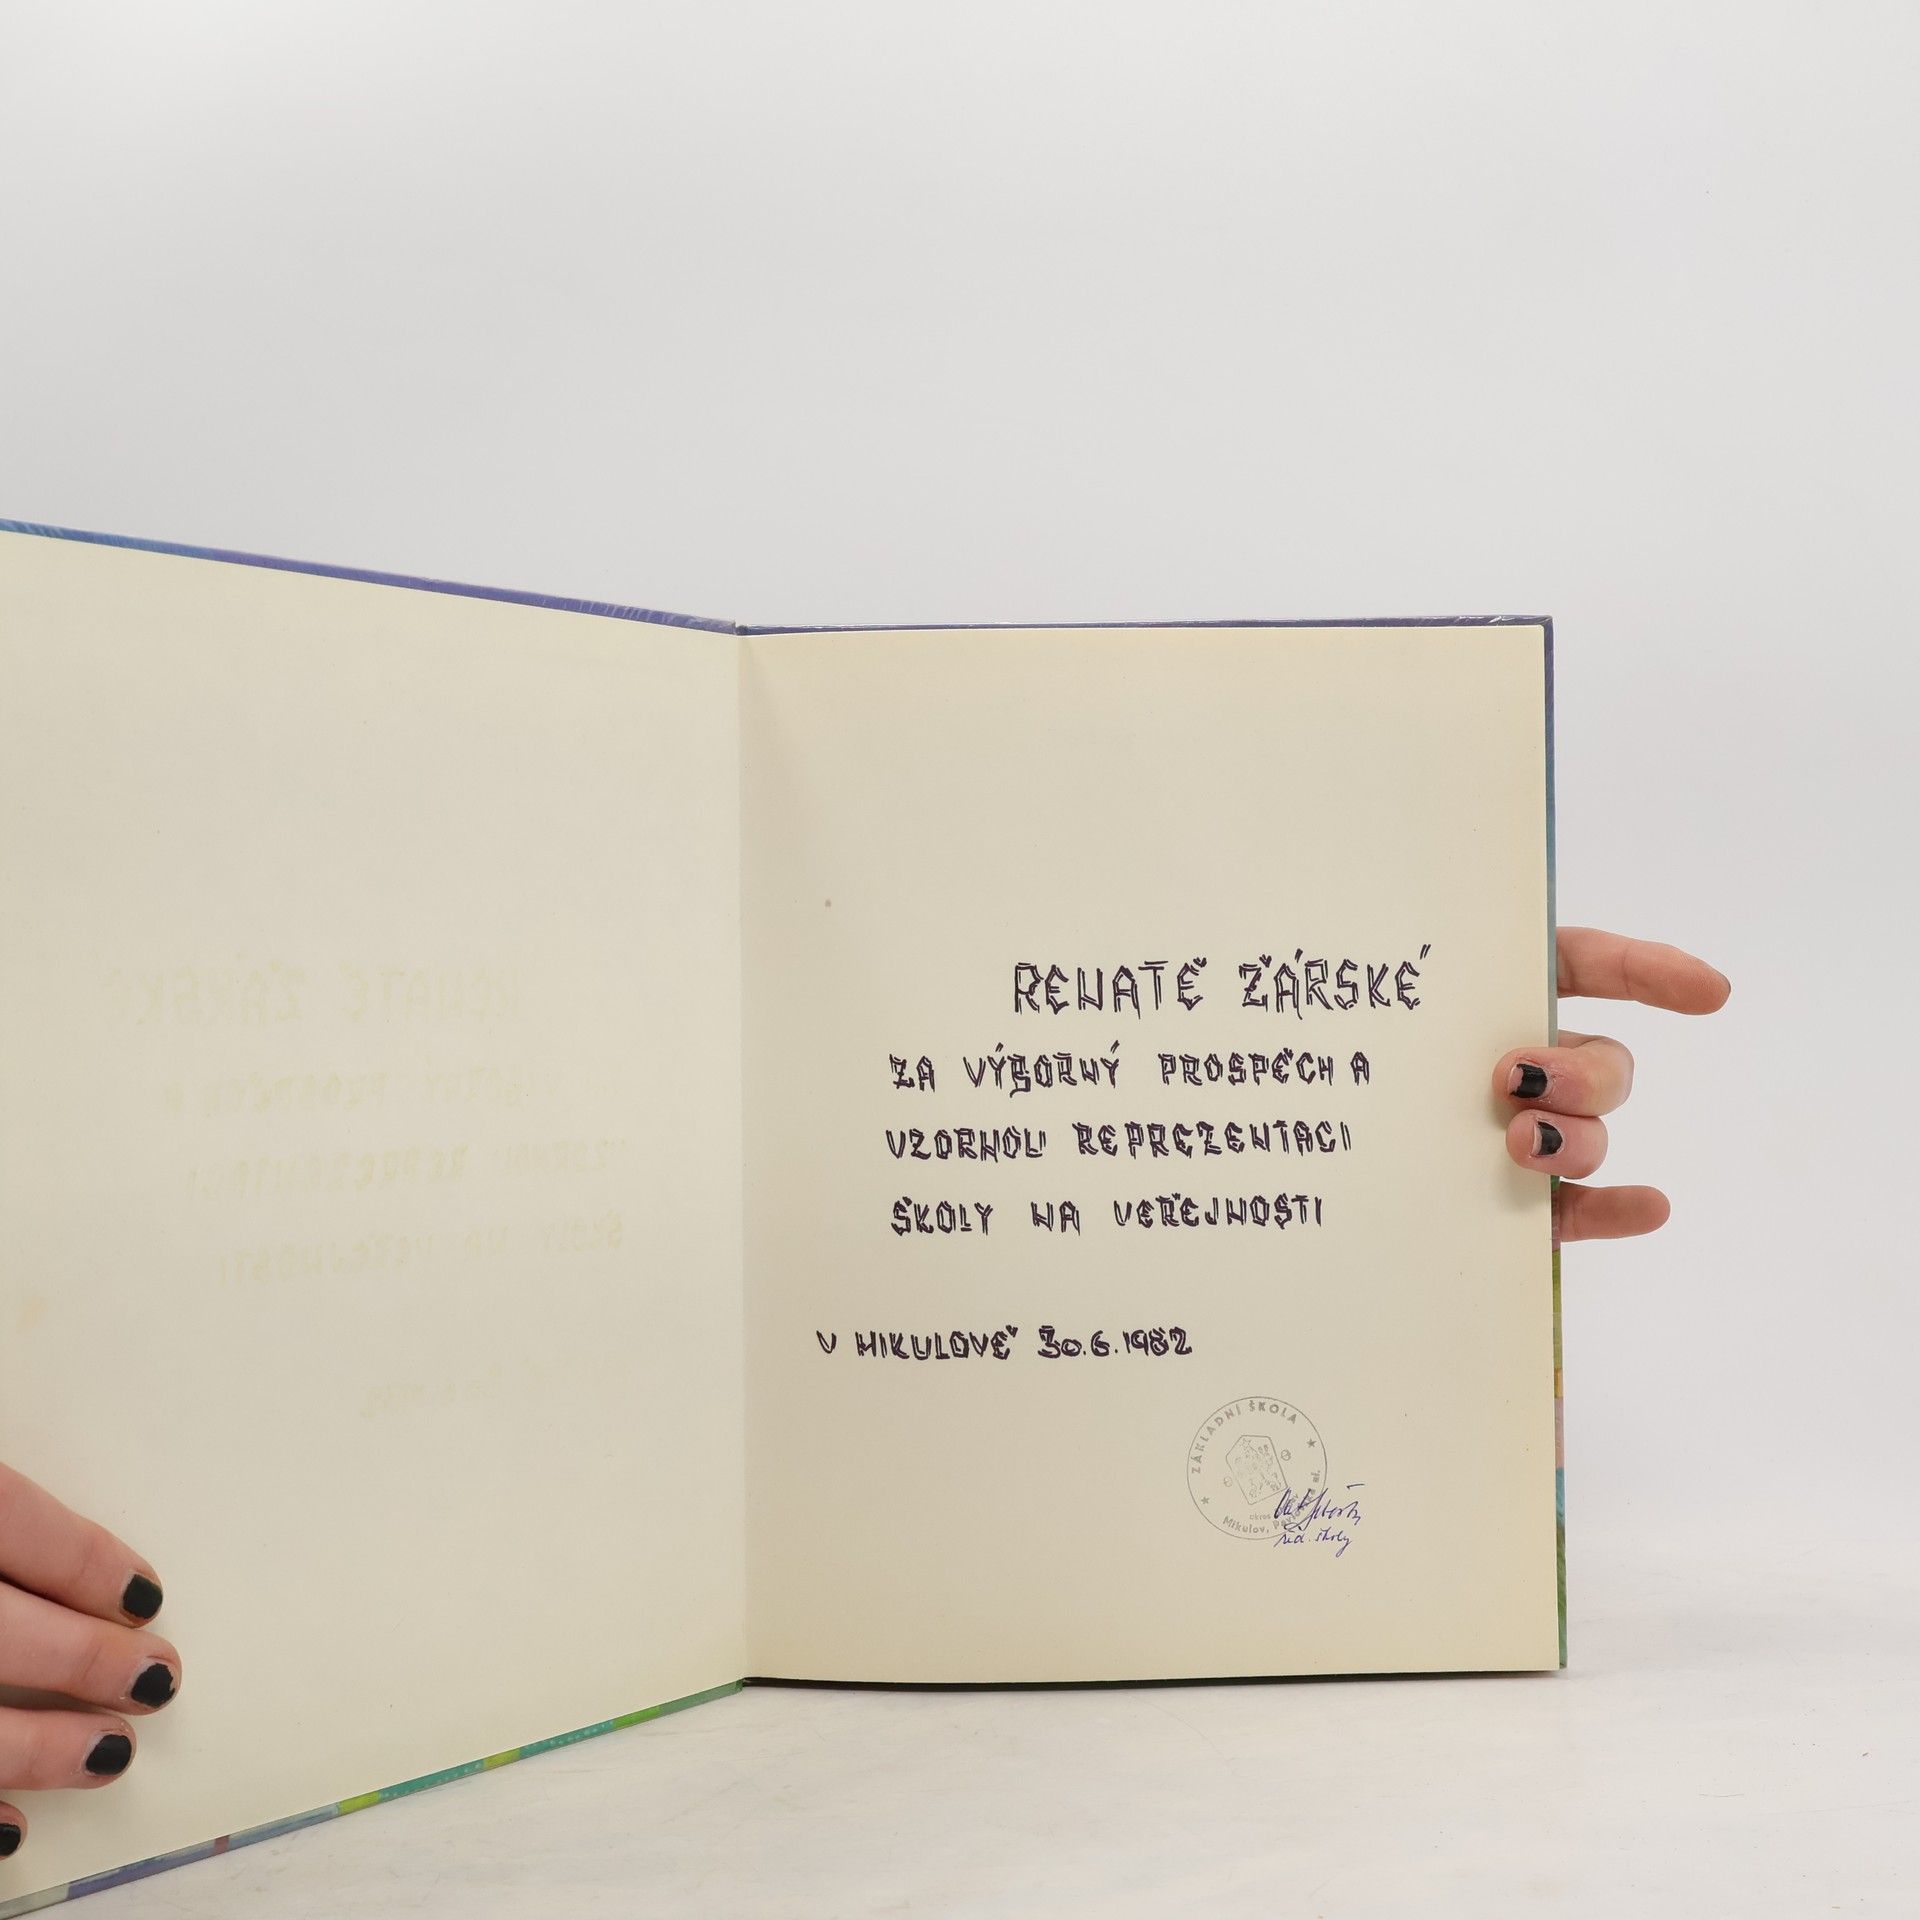 RENATĚ ŽÁRSKÉ
ZA VÝBORNÝ PROSPĚCH A
VZORNOU REPREZENTACI
ŠKOLY NA VEŘEJNOSTI
V MIKULOVĚ 30.6.1982
ZÁKLADNÍ ŠKOLA
okres
Mikulov,
řed. školy